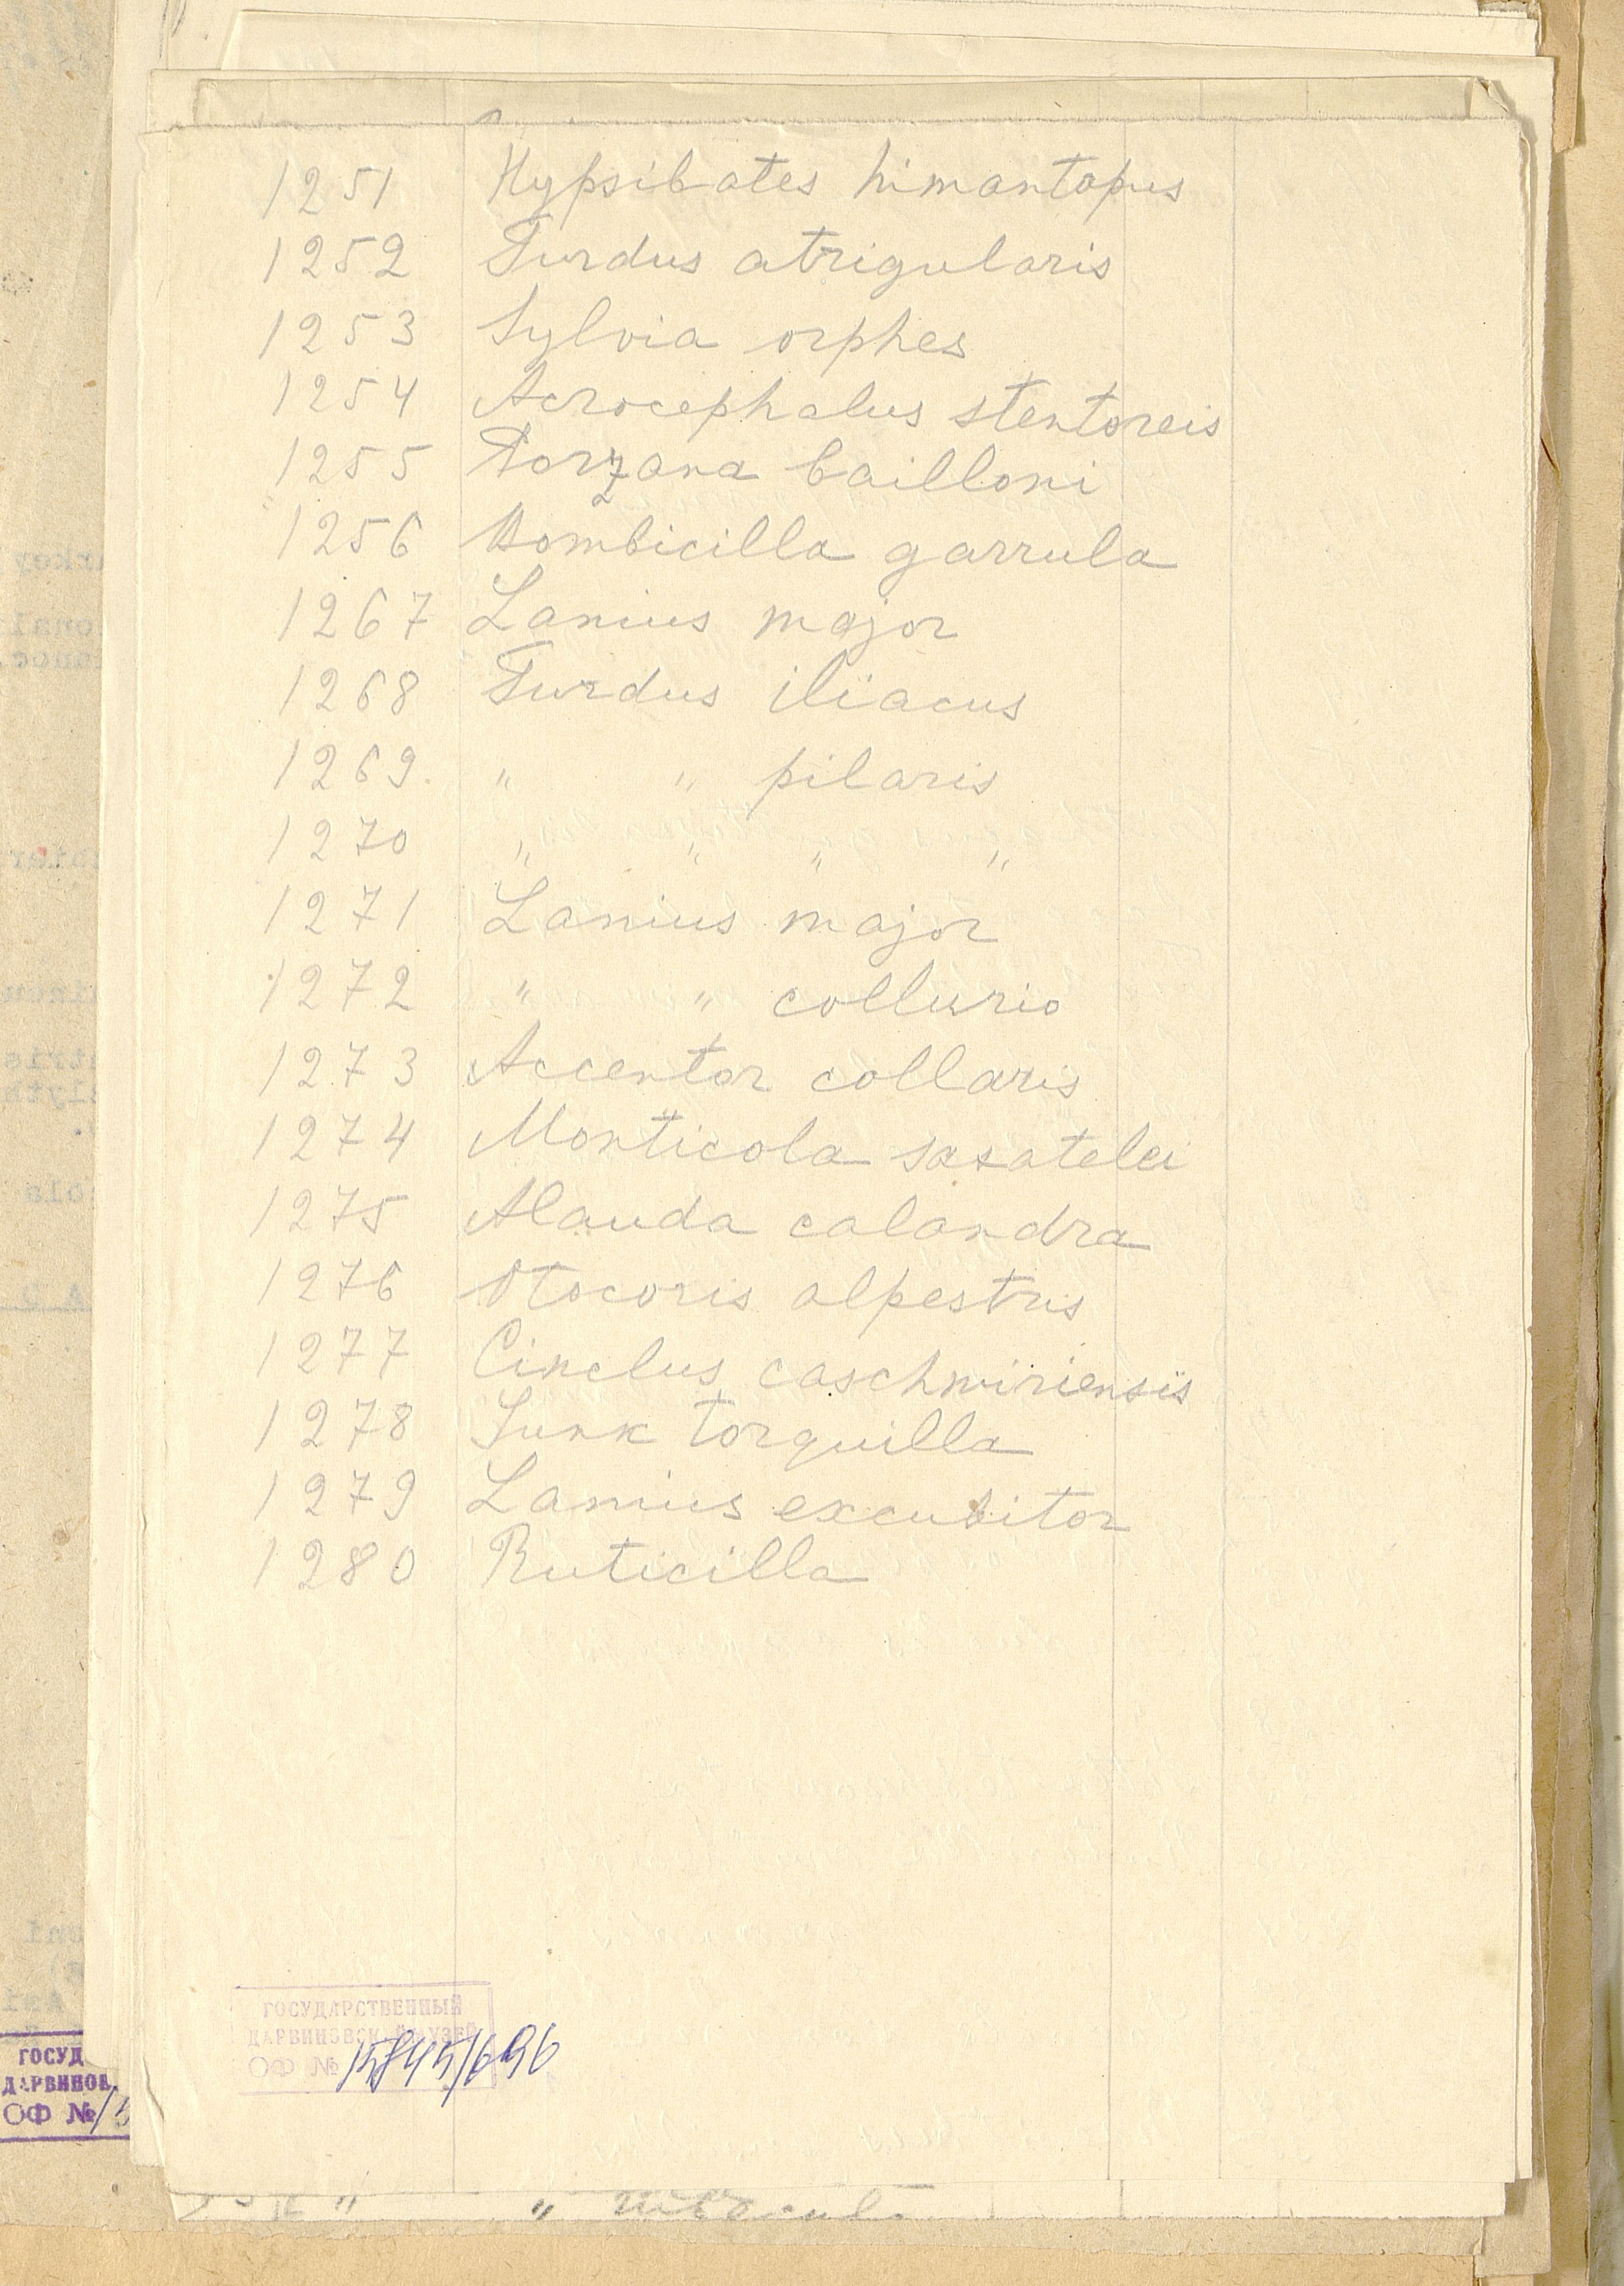 1251 Hypsibates himantopus
1252 Turdus atrigularis
1253 Sylvia orphes
1254 Acrocephalus stentoreis
1255 Porzana bailloni
1256 Bombicilla garrula
1267 Lanius major
1268 Turdus iliacus
1269. " " pilaris
1270 " " " "
1271 Lanius major
1272 " " collurio
1273 Accentor collaris
1274 Monticola saxatelei
1275 Alauda calandra
1276 Otocoris alpestris
1277 Cinclus caschmiriensis
1278 Junx torquilla
1279 Lanius excubitor
1280 Ruticilla
ГОСУДАРСТВЕННЫЙ
ДАРВИНОВСКИЙ МУЗЕЙ
ОФ № 15845/696
ГОСУД
ДАРВИНОВ
ОФ № 15